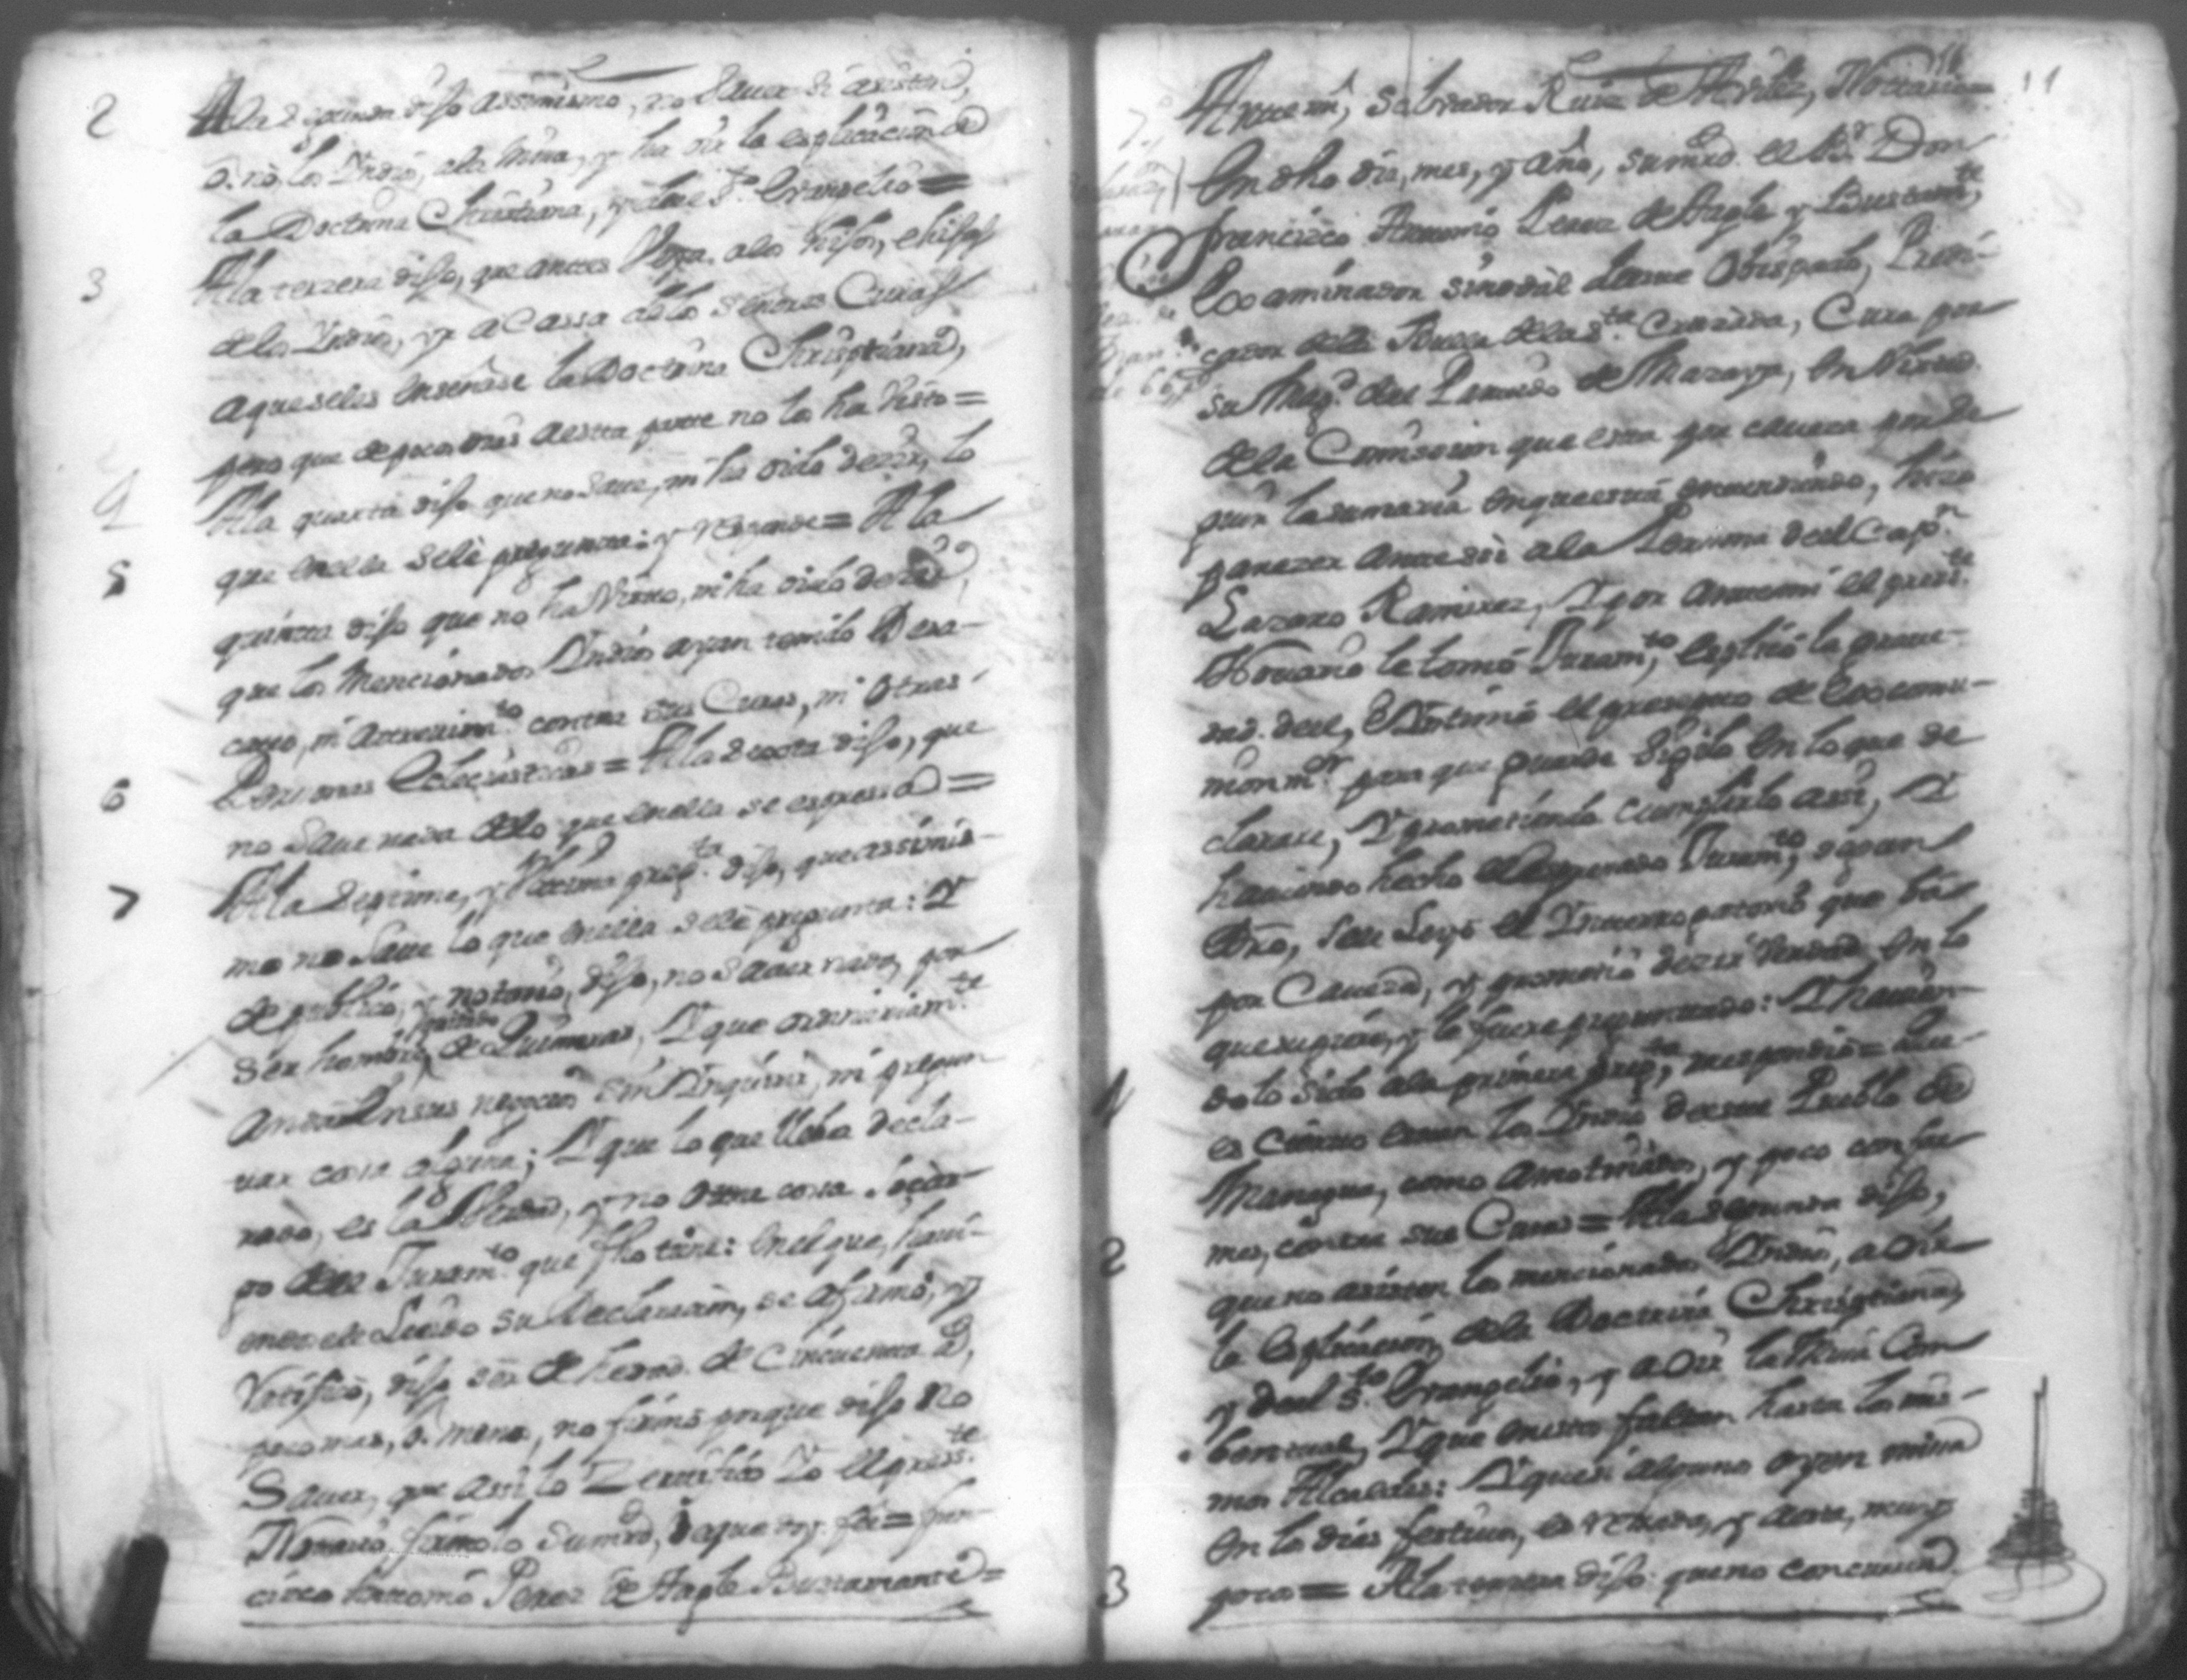 2 A la segunda dijo assimismo, no Saver si asisten,
ô no, los Yndios, a la missa, y ha oir la explicacion de
la Doctrina Christiana, y de el S.to Evangelio =
3 A la terzera dijo, que antes Veya a los hijos, e hijas
de los Yndios, yr a Cassa de los Señores Curas
a que se les enseñase la Doctrina Christptiana,
pero que de poco mas a esta parte no lo ha visto =
4 A la quarta dijo que no Save, ni ha oido dezir, lo
que en ella se le pregunta: y responde = A la
5 quinta dijo que no ha Visto, ni ha oido dezir,
que los Mencionados Yndios ayan tenido Desa-
cato, ni atrevim.to contra sus Curas, ni otras
6 Personas Eclesiasticas = A la sexta dijo, que
no Save nada de lo que en ella se expressa =
7 A la septima, y Vltima preg.ta dijo, que assimis-
mo no Save lo que en ella se le pregunta: Y
de publico, y notorio, dijo, no Saver nada, por
ser hombre de Quimeras, Y que ordinariam.te
anda en sus negocios sin Ynquirir, ni pregun
tar cosa alguna; Y que lo que lleba decla-
rado, es la Verdad, y no otra cosa, so car-
go de el Juram.to que fho tiene: en el que, havi-
endosele Leido su declaracion, se afirmó, y
Ratificó, dijo ser de hedad de Cincuenta a.s
poco mas, ô menos, no firmó porque dijo no
Saver, que assi lo Zertifico Yo el press.te
Notario, firmolo Su mrd, de que doy fee = Fran-
cisco Antonio Perez de Hagle Bustamante =
11
Ante mi, Salvador Ruiz de Aviles, Notario =
En dho dia, mes, y año, su mrd. el S.r Don
Francisco Antonio Perez de Hagle y Bustam.te,
Examinador sinodal de este Obispado, Predi-
cador de la Bulla de la S.ta Cruzada, Cura por
su Mag.d del Partido de Masaya, en Virtud
de la Comission que esta por caveza para se-
guir la sumaria en que esta entendiendo, hizo
parezer ante si a la Persona de el Cap.n
Lazaro Ramirez, Y por ante mi el press.te
Notario le tomó Juram.to, explicó la grave-
dad de el, e Yntimó el precepto de excomu-
nion m.or para que guarde sigilo en lo que de
clarare, Y prometiendo cumplirlo assi, Y
haviendo hecho el expressado Juram.to, segun
Dro, se le Leyó el Ynterrogatorio que ba
por Caveza, y prometió dezir Verdad en lo
que supiere, y le fuere preguntado: Y havien-
1 dolo sido a la primera preg.ta, respondió = Que
es cierto estan los Yndios de este Pueblo de
Managua, como amotinados, y poco confor
2 mes, contra sus Curas = A la segunda dijo,
que no asisten los mencionados Yndios, a oir
la explicacion de la Doctrina Christptiana,
y de el S.to Evangelio, y a oir la Missa Con
bentual, Y que en esto faltan hasta los mis-
mos Alcaldes: Y que si algunos oyen missa
en los dias festivos, es rezada, y estos, muy
3 pocos = A la terzera dijo: que no concurren